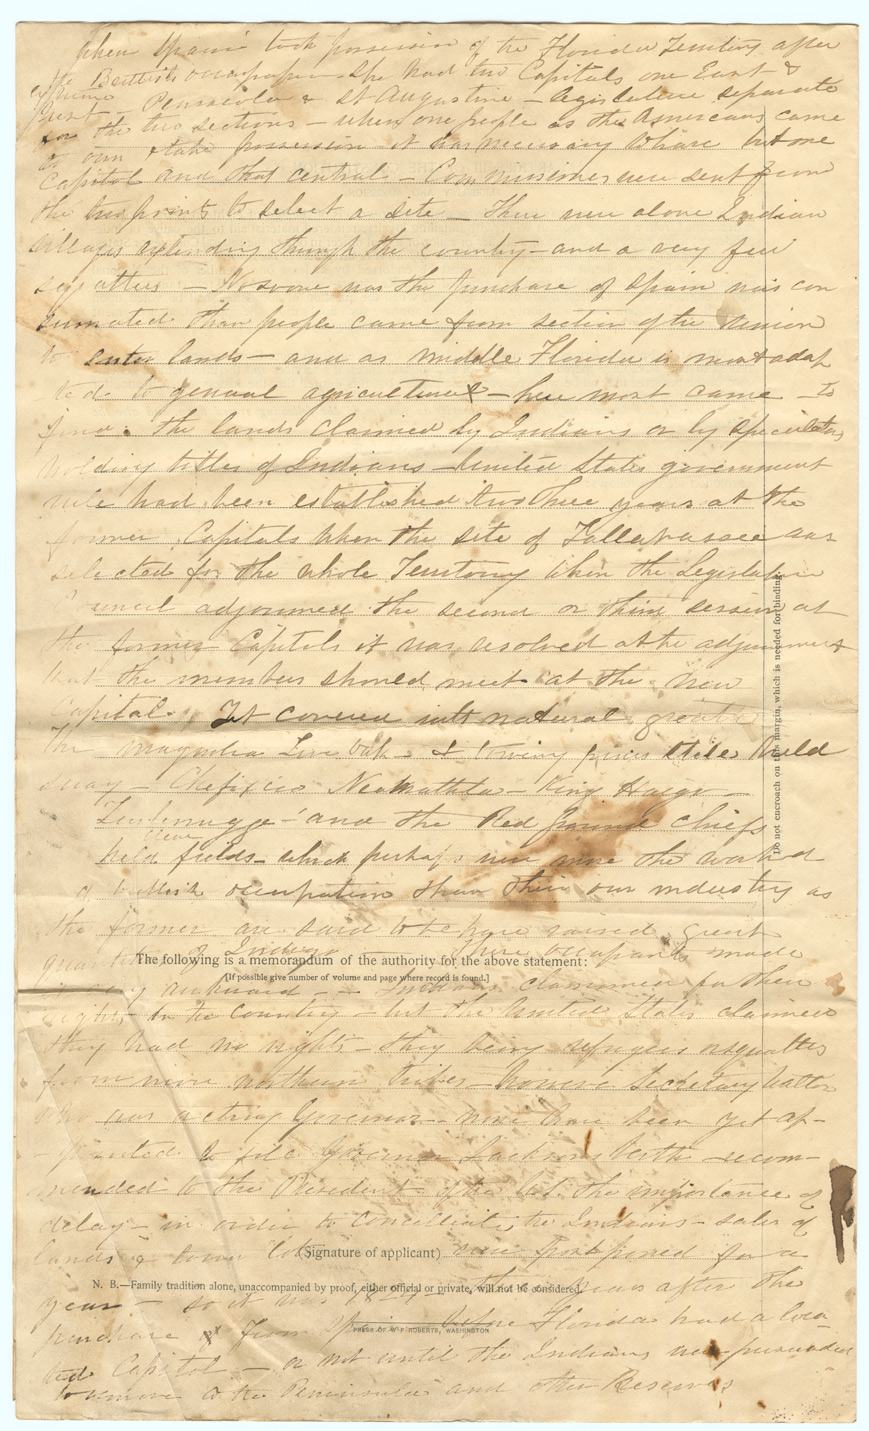 When Spain took possession of the Florida Territory after
the British occupation she had two Capitals one East &
West - Pensacola & St Augustine - legislature separate
for the two sections - when one people as the Americans came
to own & take possession it was necessary to have but one
Capitol and that central - Commissioners were sent from
the two points to select a site - There were alone Indian
villages extending through the country - and a very few
squatters - No sooner was the purchase of Spain was con
sumated than people came from section of the Union
to enter lands - and as middle Florida is most adap
ted to general agriculture - here most came to
find the lands claimed by Indians or by speculators
holding titles of Indians - United States government
rule had been established two three years at the
former Capitals when the site of Tallahassee was
selected for the whole Territory when the Legislative
Council adjourned the second or third session at
the former Capitols it was resolved at the adjournment
that the members should meet at the new
Capital. Yet covered with natural
The magnolia Live oak - & towing pines still held
sway - Chefixico Neamathla - King Haigo -
and the Red Ground chiefs
held fields - which perhaps were more the work
of British occupation than their own industry as
the former are said to have raised great
quantities of Indigo - There occupants made
The following is a memorandum of the authority for the above statement:
[If possible give number of volume and page where record is found.]
awkward - Indians claimed for their
rights in the Country - but the United States claimed
they had no rights - they being refugees or squatters
from more northern tribes - however Secretary Walton
who was acting Governor - none have been yet ap-
pointed to fill Governor Jacksons recom-
mended to the President the importance of
delay - in order to conciliate the Indians - sales of
lands & town lots were postponed for a
(Signature of applicant)
N. B.—Family tradition alone, unaccompanied by proof, either official or private, will not be considered.
year - so it was 1824 years after the
purchase of from Spain before Florida had a loca
PRESS OF W F ROBERTS, WASHINGTON
ted Capitol - or not until the Indians were persuaded
to remove to the Peninsula and other Reserves
Do not encroach on this margin, which is needed for binding.